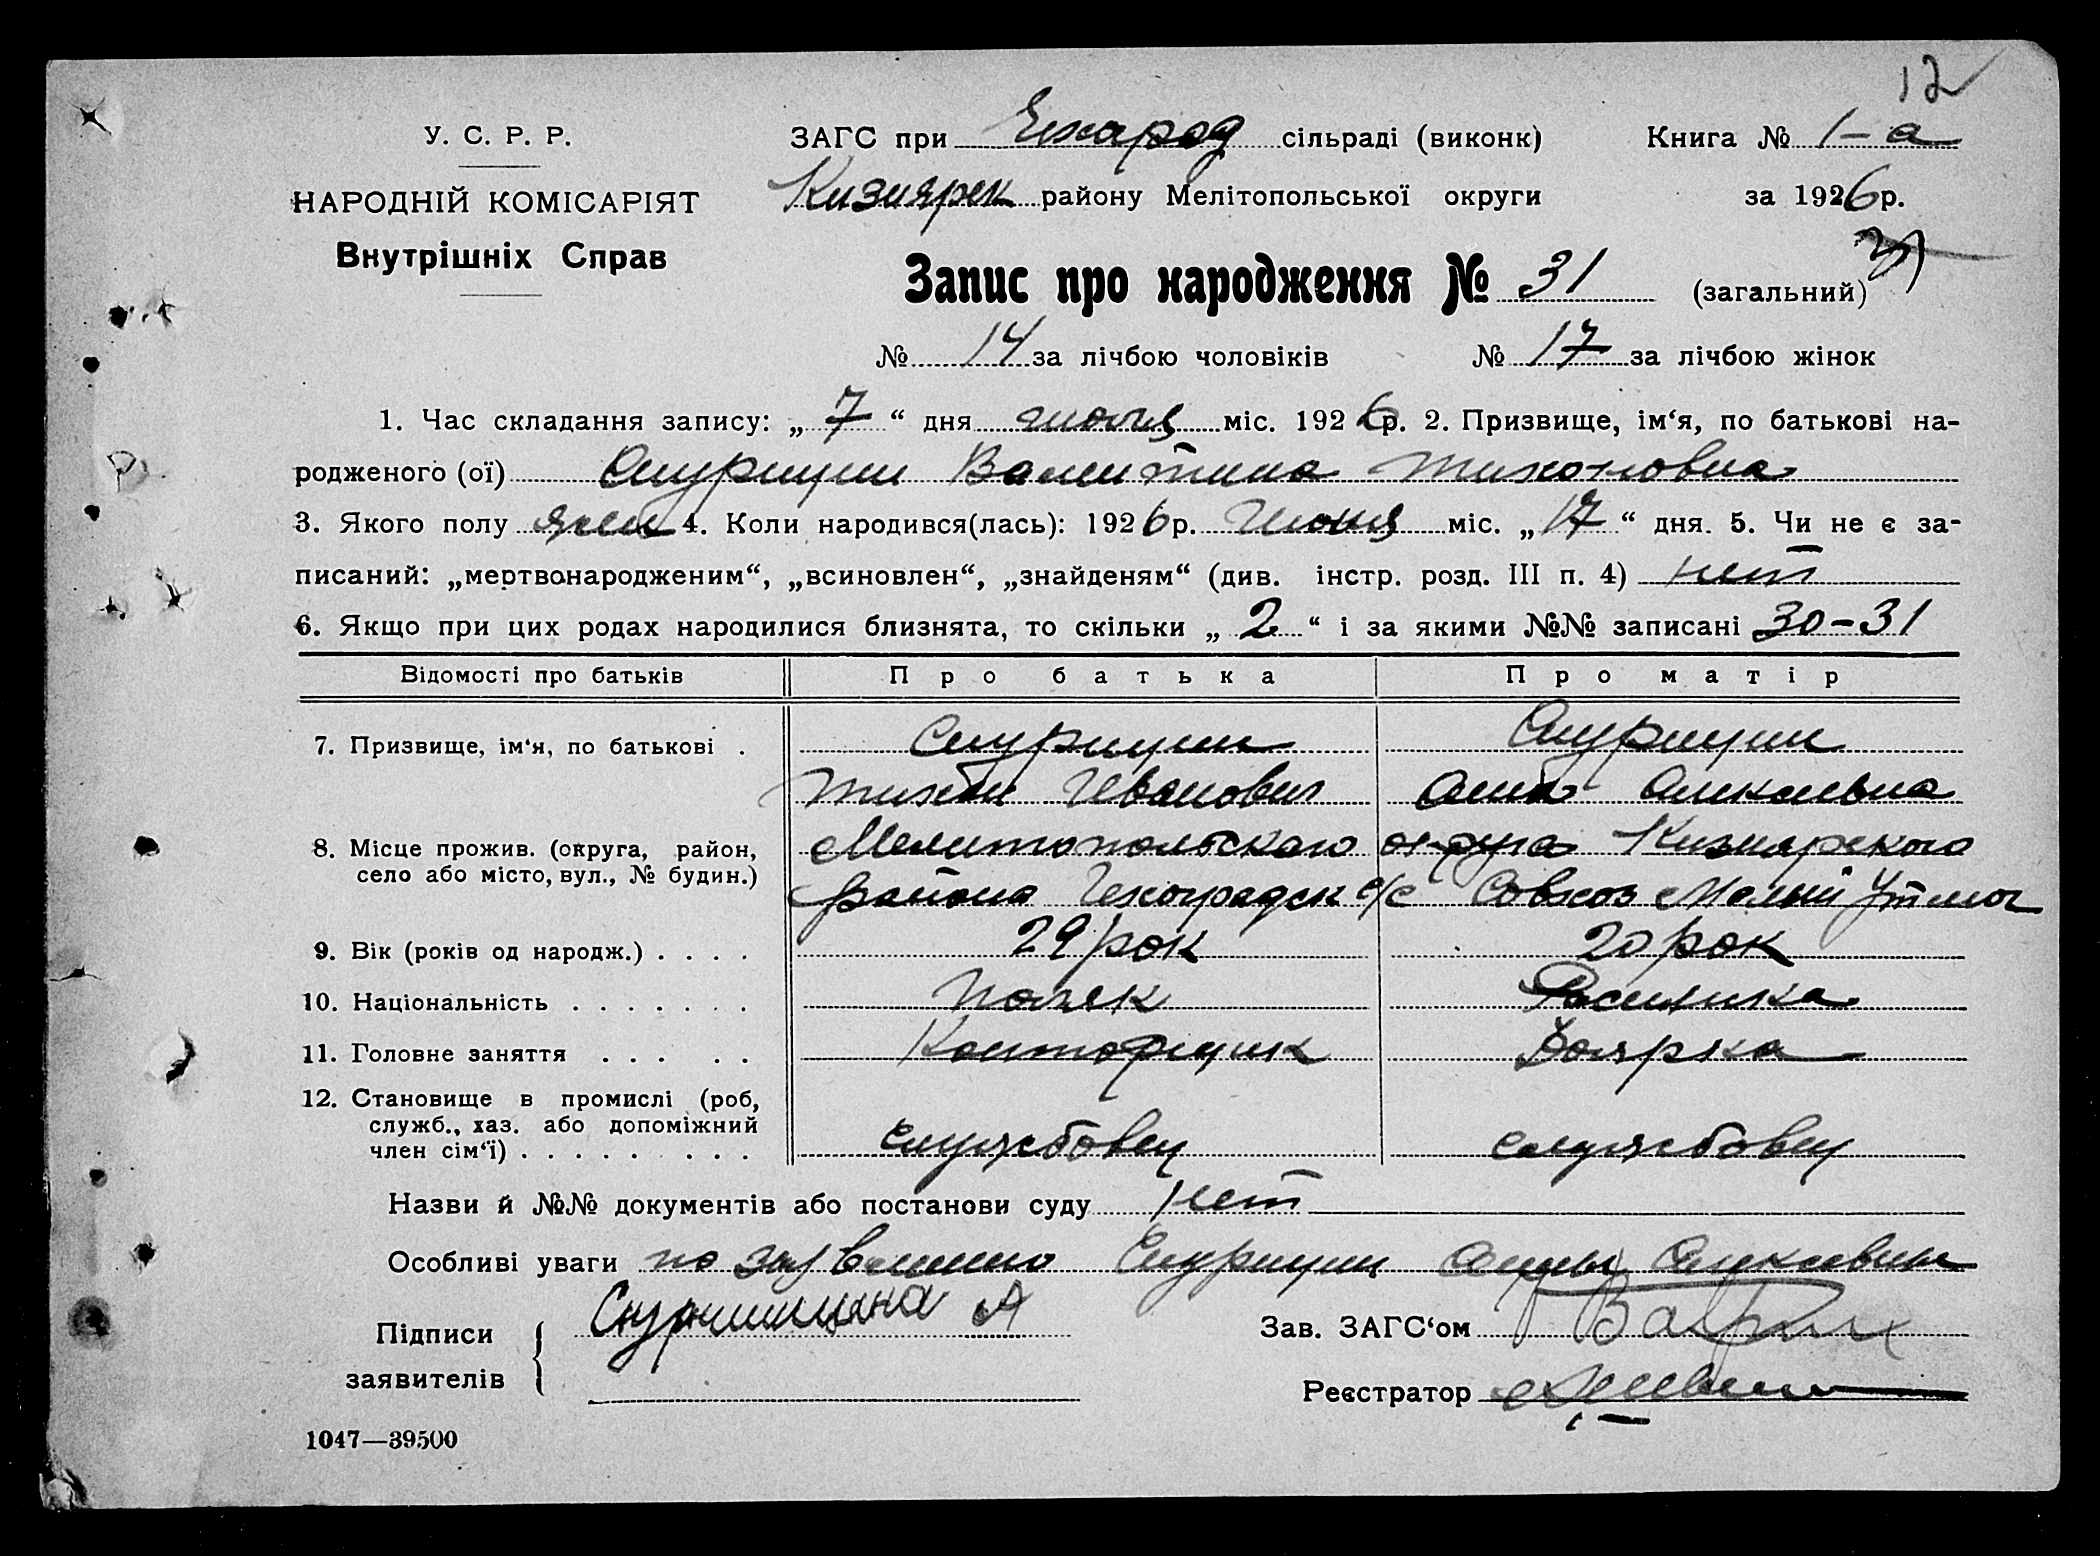 12
У. С. Р. Р.
ЗАГС при Чехоград сільраді (виконк) Книга № 1-а
НАРОДНІЙ КОМІСАРІЯТ
Кизиярск району Мелітопольської округи за 1926 р.
Внутрішніх Справ
Запис про народження № 31 (загальний) 31
№ 14 за лічбою чоловіків № 17 за лічбою жінок
1. Час складання запису: „ 7 “ дня июля міс. 1926 р. 2. Призвище, ім‘я, по батькові на-
родженого (ої) Валентина Тихоновна
3. Якого полу жен 4. Коли народився(лась): 1926 р. Июня міс. „ 17 “ дня. 5. Чи не є за-
писаний: „мертвонародженим“, „всиновлен“, „знайденям“ (див. інстр. розд. III п. 4) нет
6. Якщо при цих родах народилися близнята, то скільки „ 2 “ і за якими №№ записані 30-31
Відомості про батьків Про батька Про матір
7. Призвище, ім‘я, по батькові .
Тихон Иванович
8. Місце прожив. (округа, район, Мелитопольского округа Кизиярского
село або місто, вул., № будин.) района Чехоградск с/с Совхоз Малый Утлюг
9. Вік (років од народж.) . . . . 29 рок 20 рок
10. Національність . . . . . . . Поляк
11. Головне заняття . . . . . Конторщик Доярка
12. Становище в промислі (роб,
служб., хаз. або допоміжний
член сім‘ї) . . . . . . . . . службовец службовец
Назви й №№ документів або постанови суду нет
Особливі уваги по заявлению
Підписи А Зав. ЗАГС‘ом
заявителів Реєстратор
1047—39500